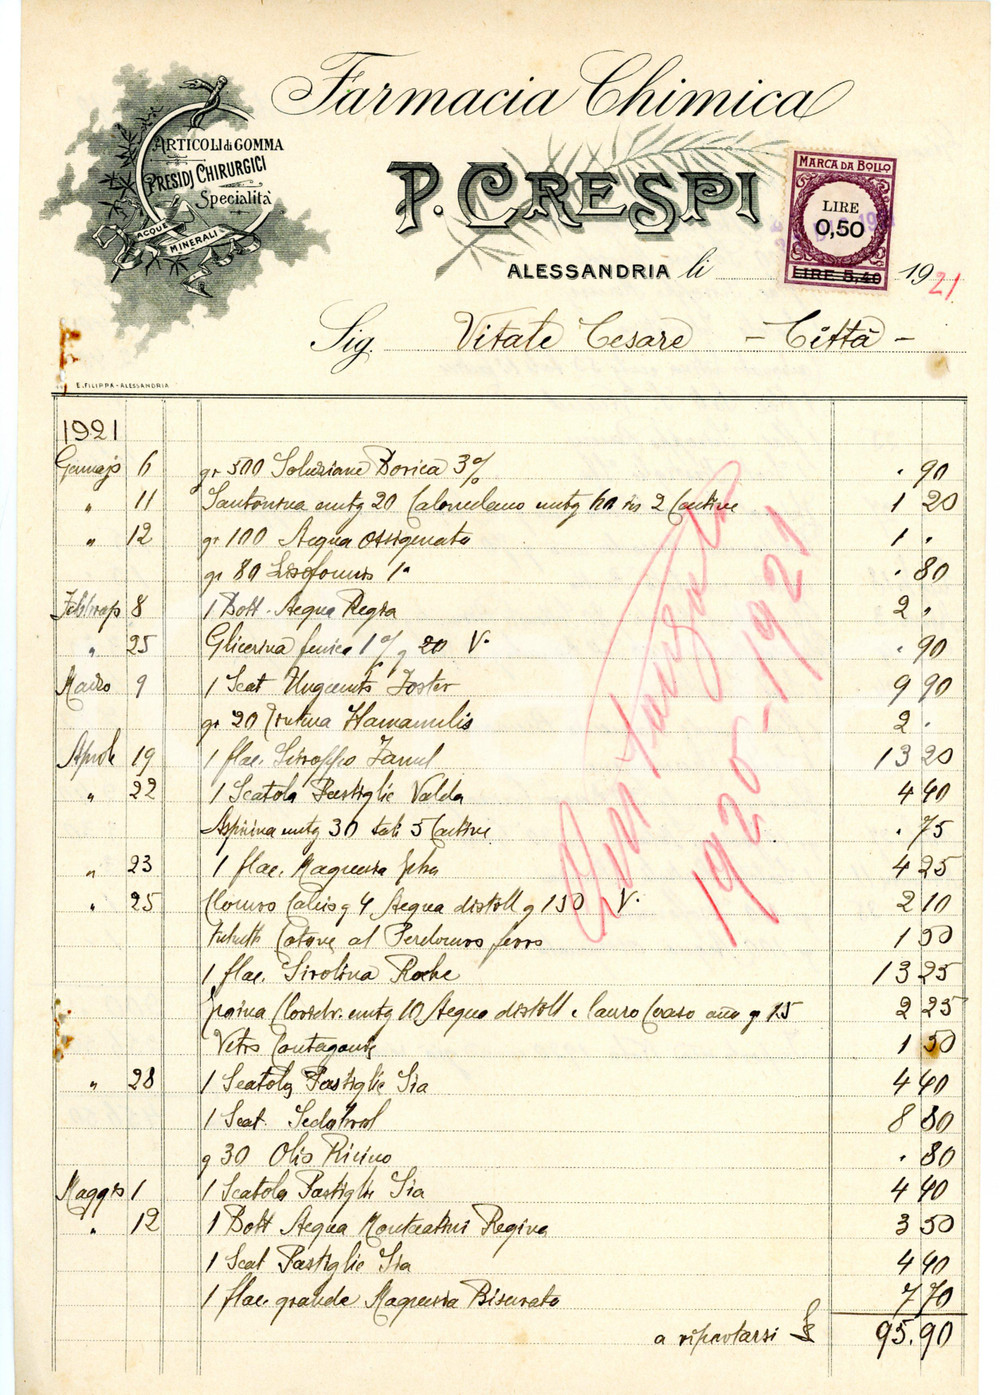 Farmacia Chimica
ARTICOLI di GOMMA
PRESIDJ CHIRURGICI
Specialità
ACQUE MINERALI
P. CRESPI
MARCA DA BOLLO
LIRE
0,50
LIRE 5,40
ALESSANDRIA li 1921
Sig. Vitale Cesare - Città -
E. FILIPPA-ALESSANDRIA
1921
6 gr 500 Soluzione Borica 3% . 90
" 11 Santonina mtg 20 Calomelano mtg in 2 Cartine 1 20
" 12 gr 100 Acqua Ossigenata 1 .
gr 80 Lisoformio . 80
8 1 Bott. Acqua Regia 2 .
" 25 Glicerina fenica 1% g 20 V. . 90
9 1 Scat Unguento Foster 9 90
gr 20 Hamamelis 2 .
Aprile 19 1 flac. Siroppo Famel 13 20
" 22 1 Scatola Pastiglie Valda 4 40
Aspirina mtg 30 tali 5 Cartine . 75
" 23 1 flac. Magnesia 4 25
" 25 Cloruro Calcio g 4 Acqua distill g 150 V. 2 10
Cotone al Percloruro ferro 1 50
1 flac. Sirolina Roche 13 25
Cloridr. mtg 10 Acqua distill e lauro Ceraso g 15 2 25
Vetro Contagocce 1 50
" 28 1 Scatola Pastiglie Sia 4 40
1 Scat. Sedobrol 8 80
g 30 Olio Ricino . 80
Maggio 1 1 Scatola Pastiglie Sia 4 40
" 12 1 Bott Acqua Montecatini Regina 3 50
1 Scat Pastiglie Sia 4 40
1 flac. grande Magnesia Bisurata 7 70
a riportarsi £ 95.90
1920-1921